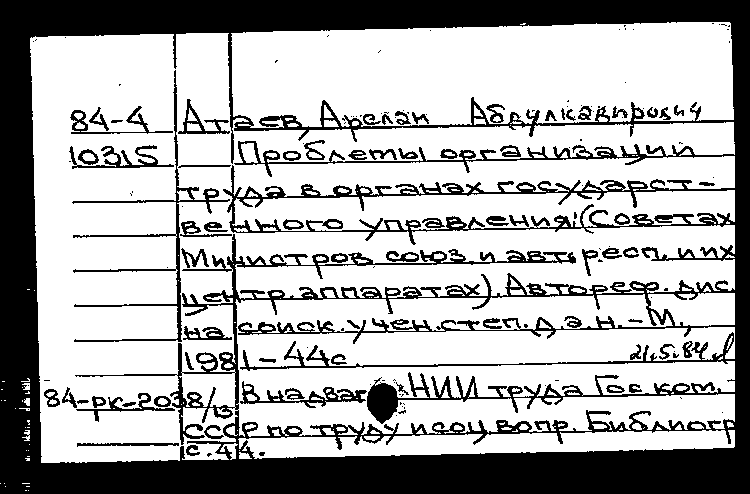 84-4 Атаев, Арслан Абдулкадирович
10315 Проблемы организации
труда в органах государст-
венного управления:(Советах
Министров союз. и авт. респ. и их
центр. аппаратах). Автореф. дис.
на соиск. учен. степ. д.э.н. - М.,
1981. - 44с. 21.5.84
84-рк-2038/13 В надзаг. НИИ труда Гос. ком.
СССР по труду и соц. вопр. Библиогр
с. 44.